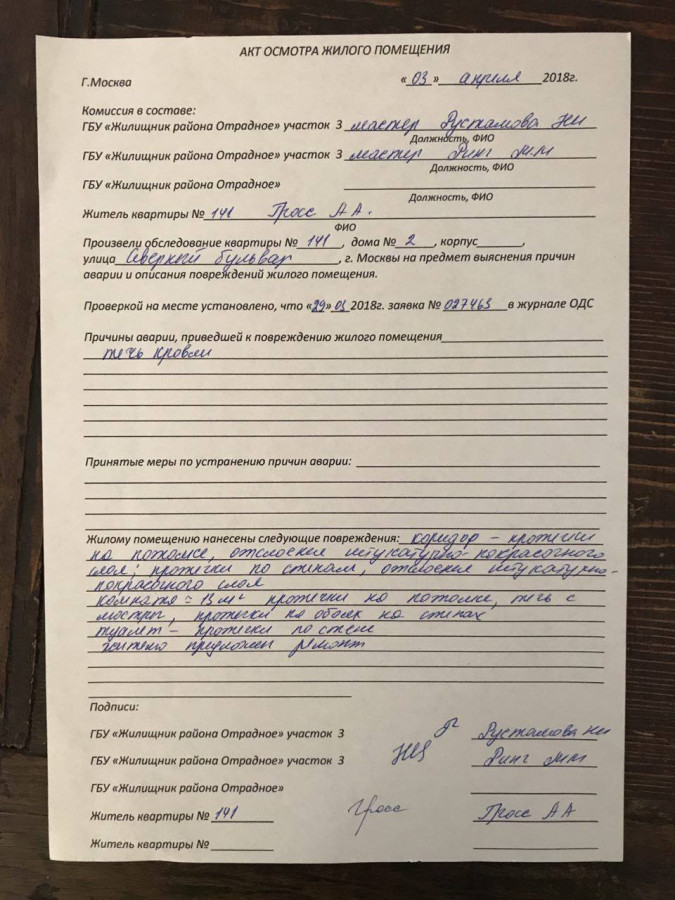 АКТ ОСМОТРА ЖИЛОГО ПОМЕЩЕНИЯ
Г.Москва «03» апреля 2018г.
Комиссия в составе:
ГБУ «Жилищник района Отрадное» участок 3 мастер Рустамова НИ
Должность, ФИО
ГБУ «Жилищник района Отрадное» участок 3 мастер Ринг ММ
Должность, ФИО
ГБУ «Жилищник района Отрадное»
Должность, ФИО
Житель квартиры № 141 Гросс А А.
ФИО
Произвели обследование квартиры № 141, дома № 2, корпус ,
улица Северный бульвар, г. Москвы на предмет выяснения причин
аварии и описания повреждений жилого помещения.
Проверкой на месте установлено, что «29» 03 2018г. заявка № 027463 в журнале ОДС
Причины аварии, приведшей к повреждению жилого помещения
течь кровли
Принятые меры по устранению причин аварии:
Жилому помещению нанесены следующие повреждения: коридор – протечки
на потолке, отслоение штукатурно-покрасочного
слоя; протечки по стенам, отслоение штукатурно-
покрасочного слоя
комната = 13 м² протечки на потолке, течь с
люстры, протечки на обоях на стенах
туалет – протечки по стене
жителю предложен ремонт
Подписи:
ГБУ «Жилищник района Отрадное» участок 3 Рустамова НИ
ГБУ «Жилищник района Отрадное» участок 3 Ринг ММ
ГБУ «Жилищник района Отрадное»
Житель квартиры № 141 Гросс Гросс А А
Житель квартиры №